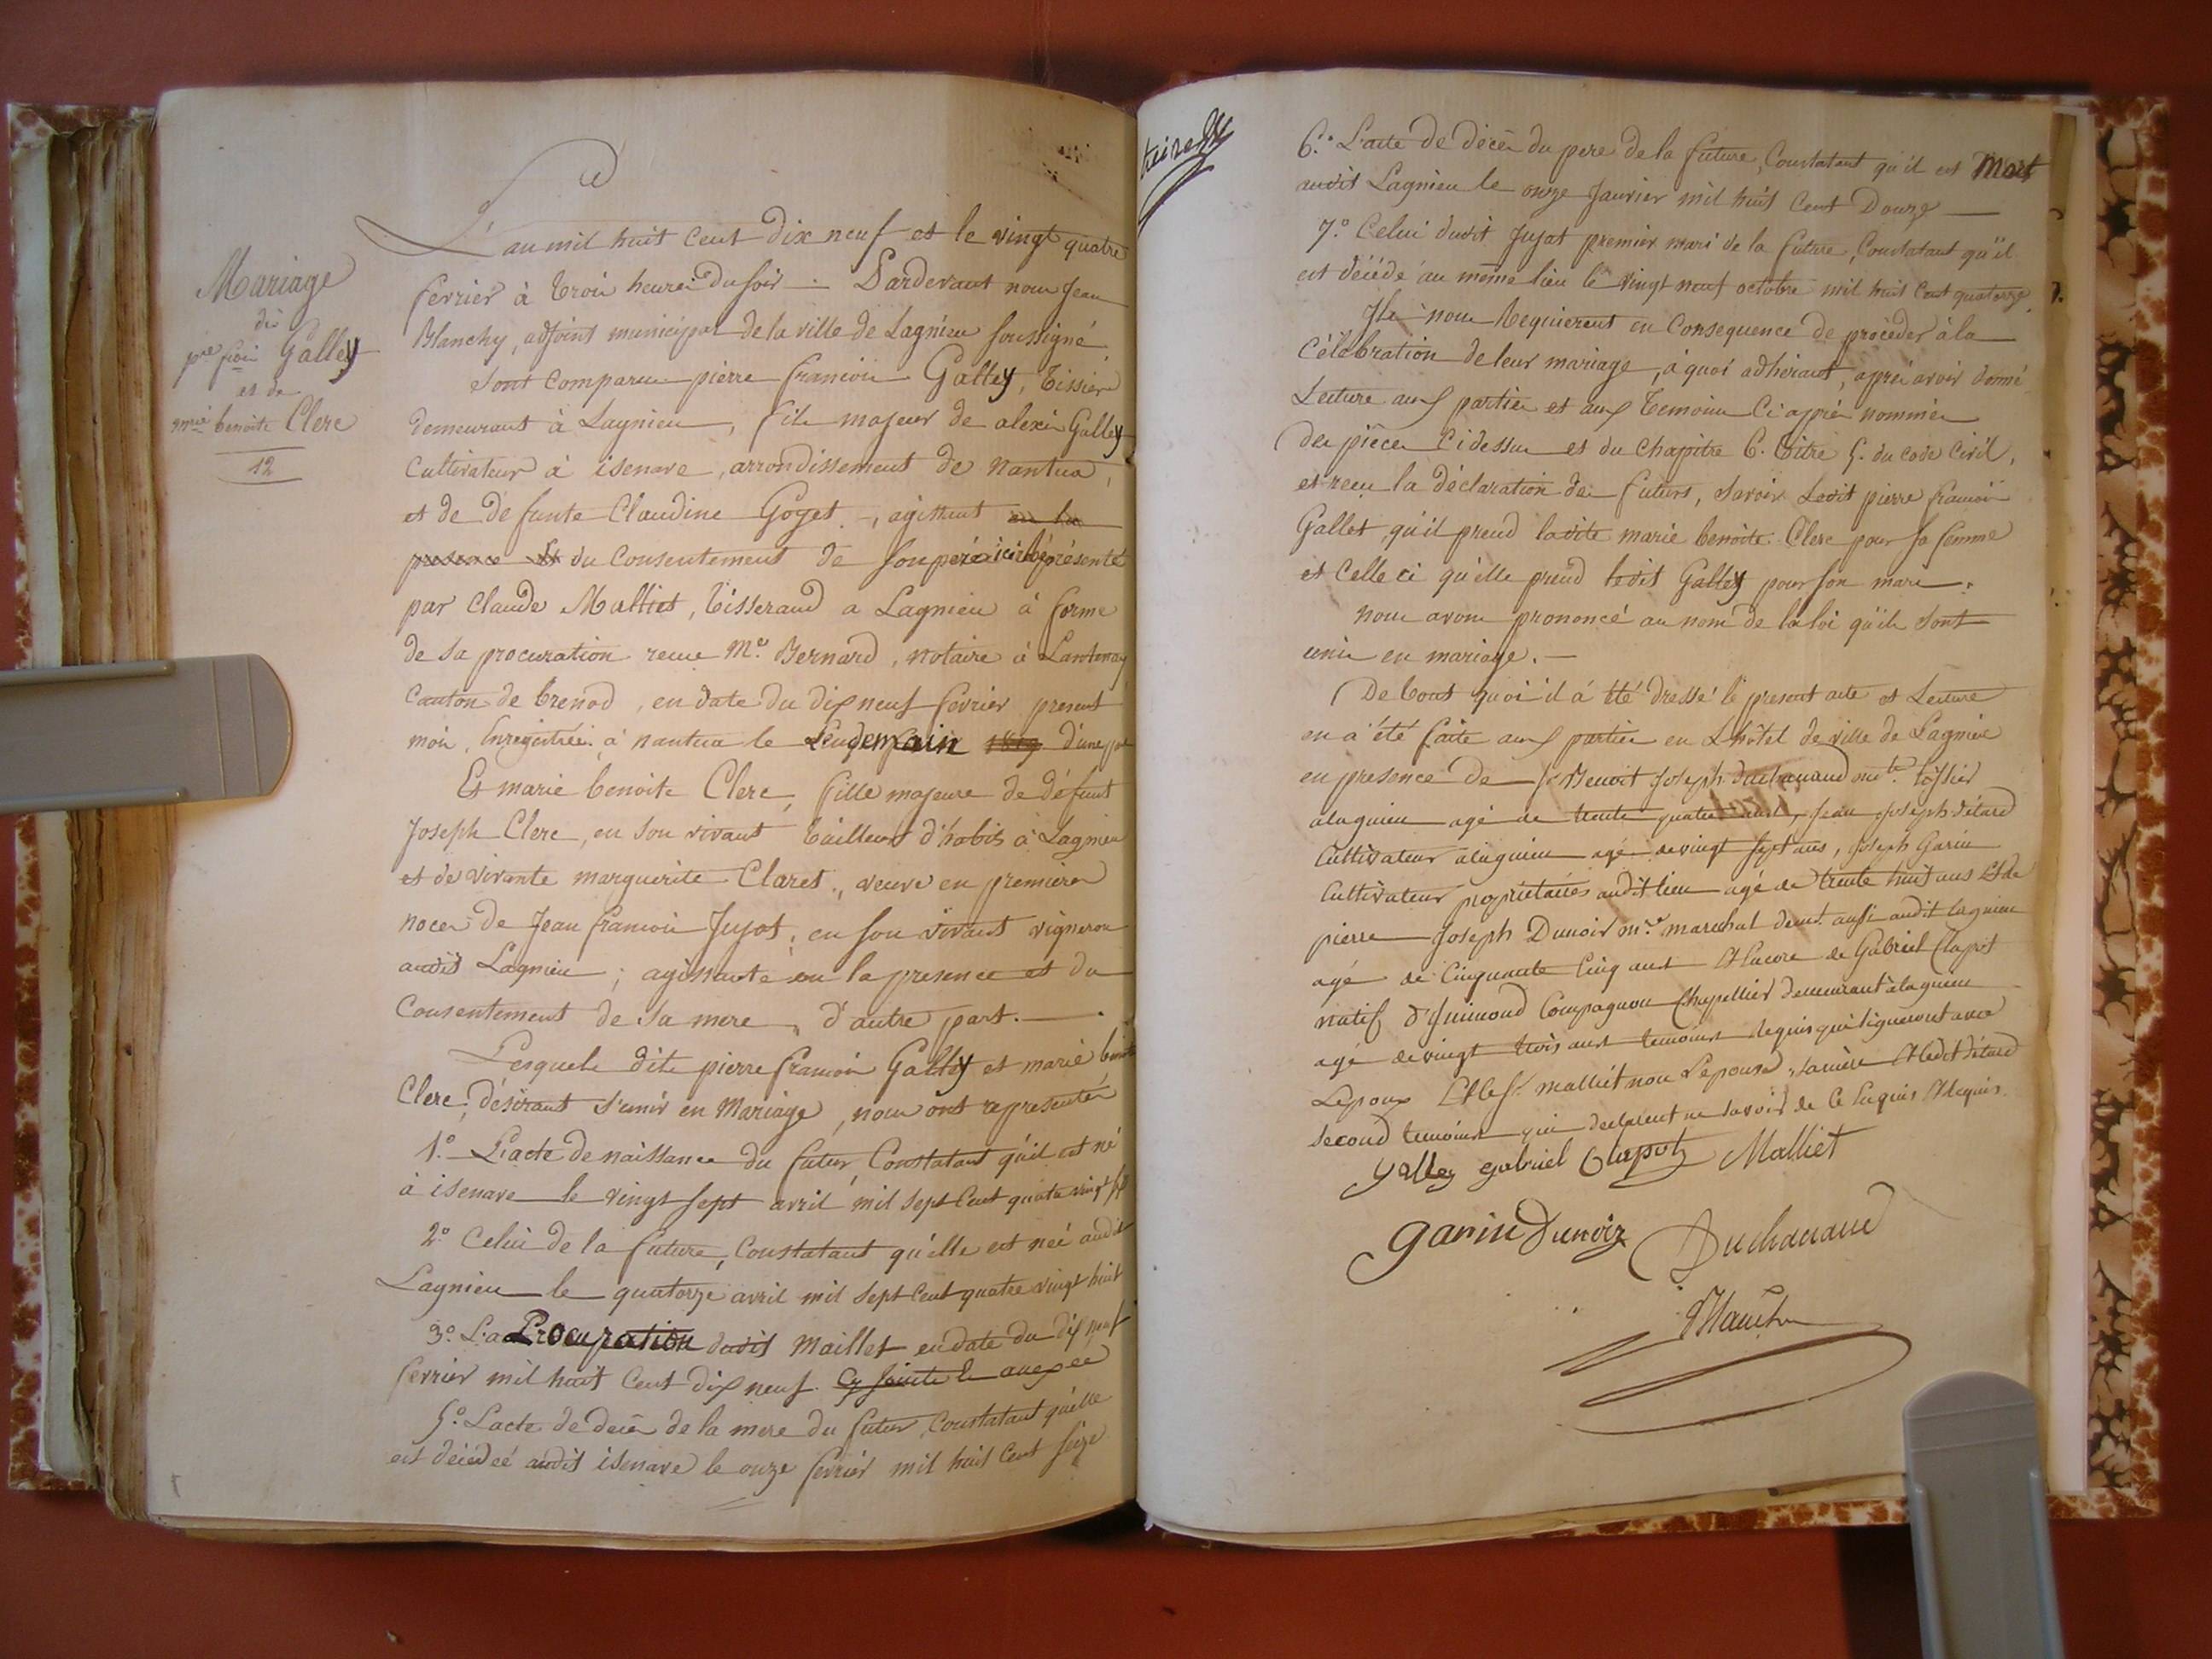 Mariage
de
pre fçois Galley
et de
mrie benoite Clerc
12
L'an mil huit cent dix neuf et le vingt quatre
fevrier à trois heures du soir. Pardevant nous Jean
Blanchy, adjoint municipal de la ville de Lagnieu soussigné
sont comparus pierre françois Galley, tissier
demeurant à Lagnieu, fils majeur de alexis Galley
cultivateur à isenave, arrondissement de Nantua,
et de defunte Claudine Goyet, agissant en la
presence et du consentement de son père ici représenté
par Claude Malliet, tisserand a Lagnieu à forme
de sa procuration reçue Me Bernard, notaire à Lantenay
canton de brenod, en date du dix neuf fevrier present
mois, Enregistrée à nantua le Lendemain 1819 d'une part
Et marie benoite Clerc, fille majeure de défunt
Joseph Clerc, en son vivant tailleur d'habits à Lagnieu
et de vivante marguerite Claret, veuve en premieres
noces de Jean françois Jujat, en son vivant vigneron
audit Lagnieu; agissante en la presence et du
consentement de sa mere, d'autre part.
Lesquels dits pierre françois Galley et marie benoite
Clerc, désirant s'unir en Mariage, nous ont representés
1.° L'acte de naissance du futur, Constatant qu'il est né
à isenave le vingt sept avril mil sept cent quatre vingt sept
2.° Celui de la future, Constatant qu'elle est née audit
Lagnieu le quatorze avril mil sept cent quatre vingt huit
3.° La Procuration dudit Maillet en date du dix neuf
fevrier mil huit cent dix neuf. Cy jointe et anexée
5.° L'acte de décès de la mere du futur, Constatant qu'elle
est décédée audit isenave le onze fevrier mil huit cent seize
6.° L'acte de décès du pere de la future, Constatant qu'il est Mort
audit Lagnieu le onze Janvier mil huit cent Douze
7.° Celui dudit Jujat premier mari de la future, Constatant qu'il
est décédé au même lieu le vingt neuf octobre mil huit cent quatorze.
Ils nous Requierent en Consequence de procéder à la
Célébration de leur mariage, à quoi adhérant, après avoir donné
Lecture aux parties et aux temoins Ci après nommés
des pièces Cidessus et du chapitre 6. titre 5. du code Civil,
et reçu la déclaration des futurs, savoir Ledit pierre françois
Gallet qu'il prend ladite marie benoite Clerc pour sa femme
et Celle ci qu'elle prend ledit Galley pour son mari.
nous avons prononcé au nom de la loi qu'ils sont
unis en mariage.
De tout quoi il a été dressé le present acte et Lecture
en a été faite aux parties en L'hôtel de ville de Lagnieu
en presence de Sr Benoit Joseph Duchanaud
alagnieu agé de trente quatre ans, Jean Joseph
Cultivateur alagnieu agé de vingt sept ans, Joseph Garin
Cultivateur proprietaires audit lieu agé de trente huit ans Et de
pierre Joseph Dunoir me marechal demt aussi audit lagnieu
agé de Cinquante Cinq ans Et Encore de Gabriel Clapot
natif d'Juimond Compagnon Chapellier demeurant à lagnieu
agé de vingt trois ans temoins requis qui signeront avec
Lepoux Et le Sr malliet non Lepouse, sa mère Et ledit
second temoins qui declarent ne savoir de Ce Enquis Et requis.
galley gabriel Clapot Malliet
garin Dunoiz Duchanaud
Blanchy